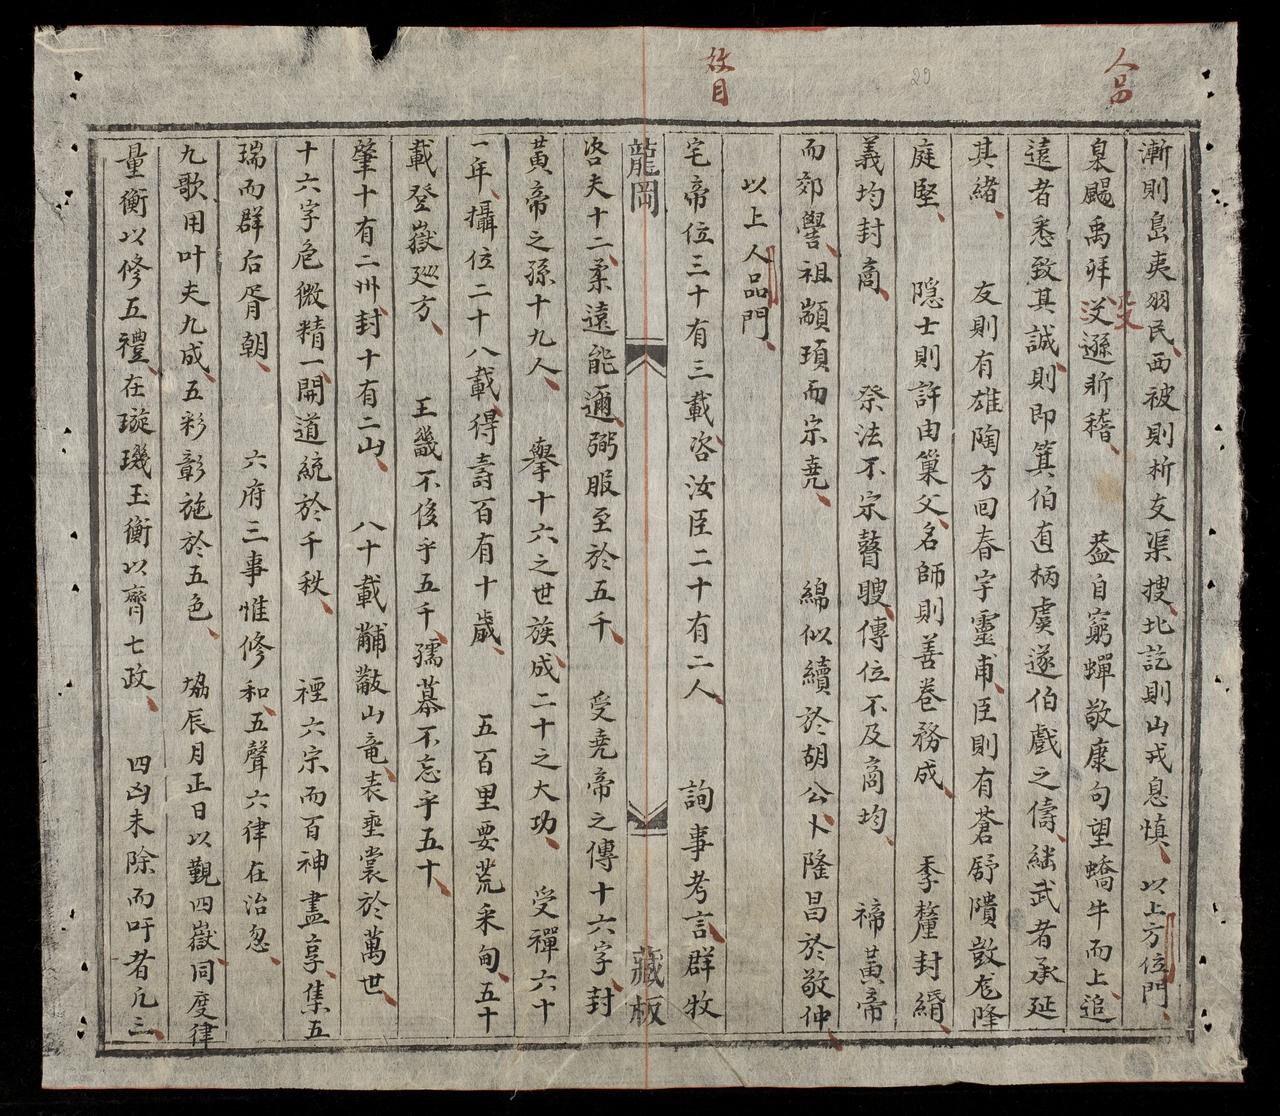 人品
漸則島夷羽民西被則析支渠搜北訖則山戎息慎以上方位門
皐颺禹拜殳遜斨稽 葢自窮蟬敬康句望蟜牛而上追
殳
遠者悉致其誠則即箕伯直柄虞遂伯戲之儔繼武者承延
其緒 友則有雄陶方回春字靈甫臣則有蒼舒隤敳尨降
29
庭堅 隠士則許由巢父名師則善卷務成 季釐封緡
義均封商 祭法不宗瞽瞍傳位不及商均 禘黃帝
而郊嚳祖顓頊而宗堯 綿似續於胡公卜隆昌於敬仲
以上人品門
数目
宅帝位三十有三載咨汝臣二十有二人 詢事考言群牧
龍岡 藏板
咨夫十二柔遠能邇弼服至於五千 受堯帝之傳十六字封
黃帝之孫十九人 舉十六之世族成二十之大功 受禪六十
一年攝位二十八載得壽百有十歲 五百里要荒釆甸五十
載登嶽廵方 王畿不俊乎五千孺慕不忘乎五十
肇十有二州封十有二山 八十載黼黻山竜表垂裳於萬世
十六字危微精一開道統於千秋 禋六宗而百神盡享集五
瑞而群后胥朝 六府三事惟修和五聲六律在治忽
九歌用叶夫九成五彩彰施於五色 協辰月正日以覲四嶽同度律
量衡以修五禮在璇璣玉衡以齊七政 四凶未除而吁者凢三